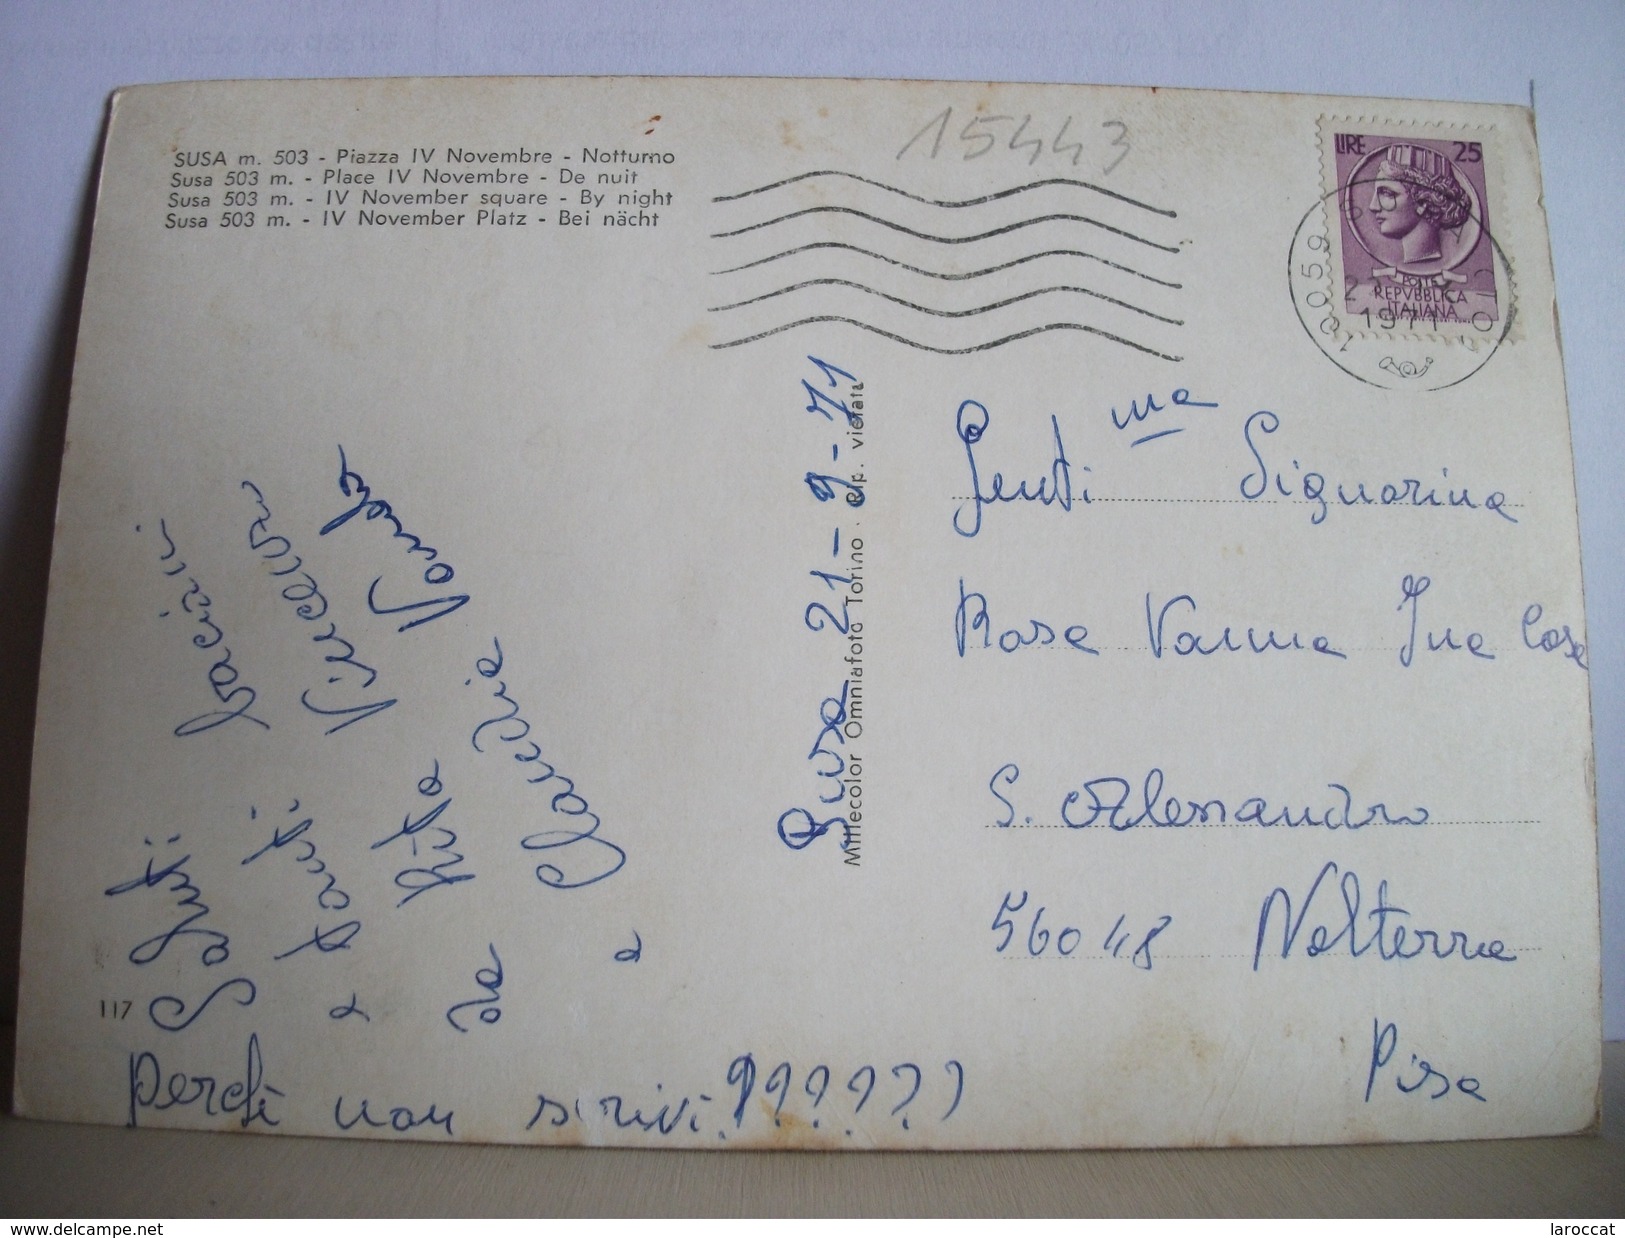 SUSA m. 503 - Piazza IV Novembre - Notturno
Susa 503 m. - Place IV Novembre - De nuit
Susa 503 m. - IV November square - By night
Susa 503 m. - IV November Platz - Bei nächt
15443
LIRE 25
POSTE
REPVBBLICA
ITALIANA
10059
1971
Millecolor Omniafoto Torino. Rip. vietata
Susa 21-9-71
Saluti bacini
e tanti
da Rita Vincenzo
e Claudia Vanda
Perché non scrivi??????
Genti ma Signorina
Rosa Vanna Ina
S. Alessandro
56048 Volterra
Pisa
117
delcampe.net
laroccat